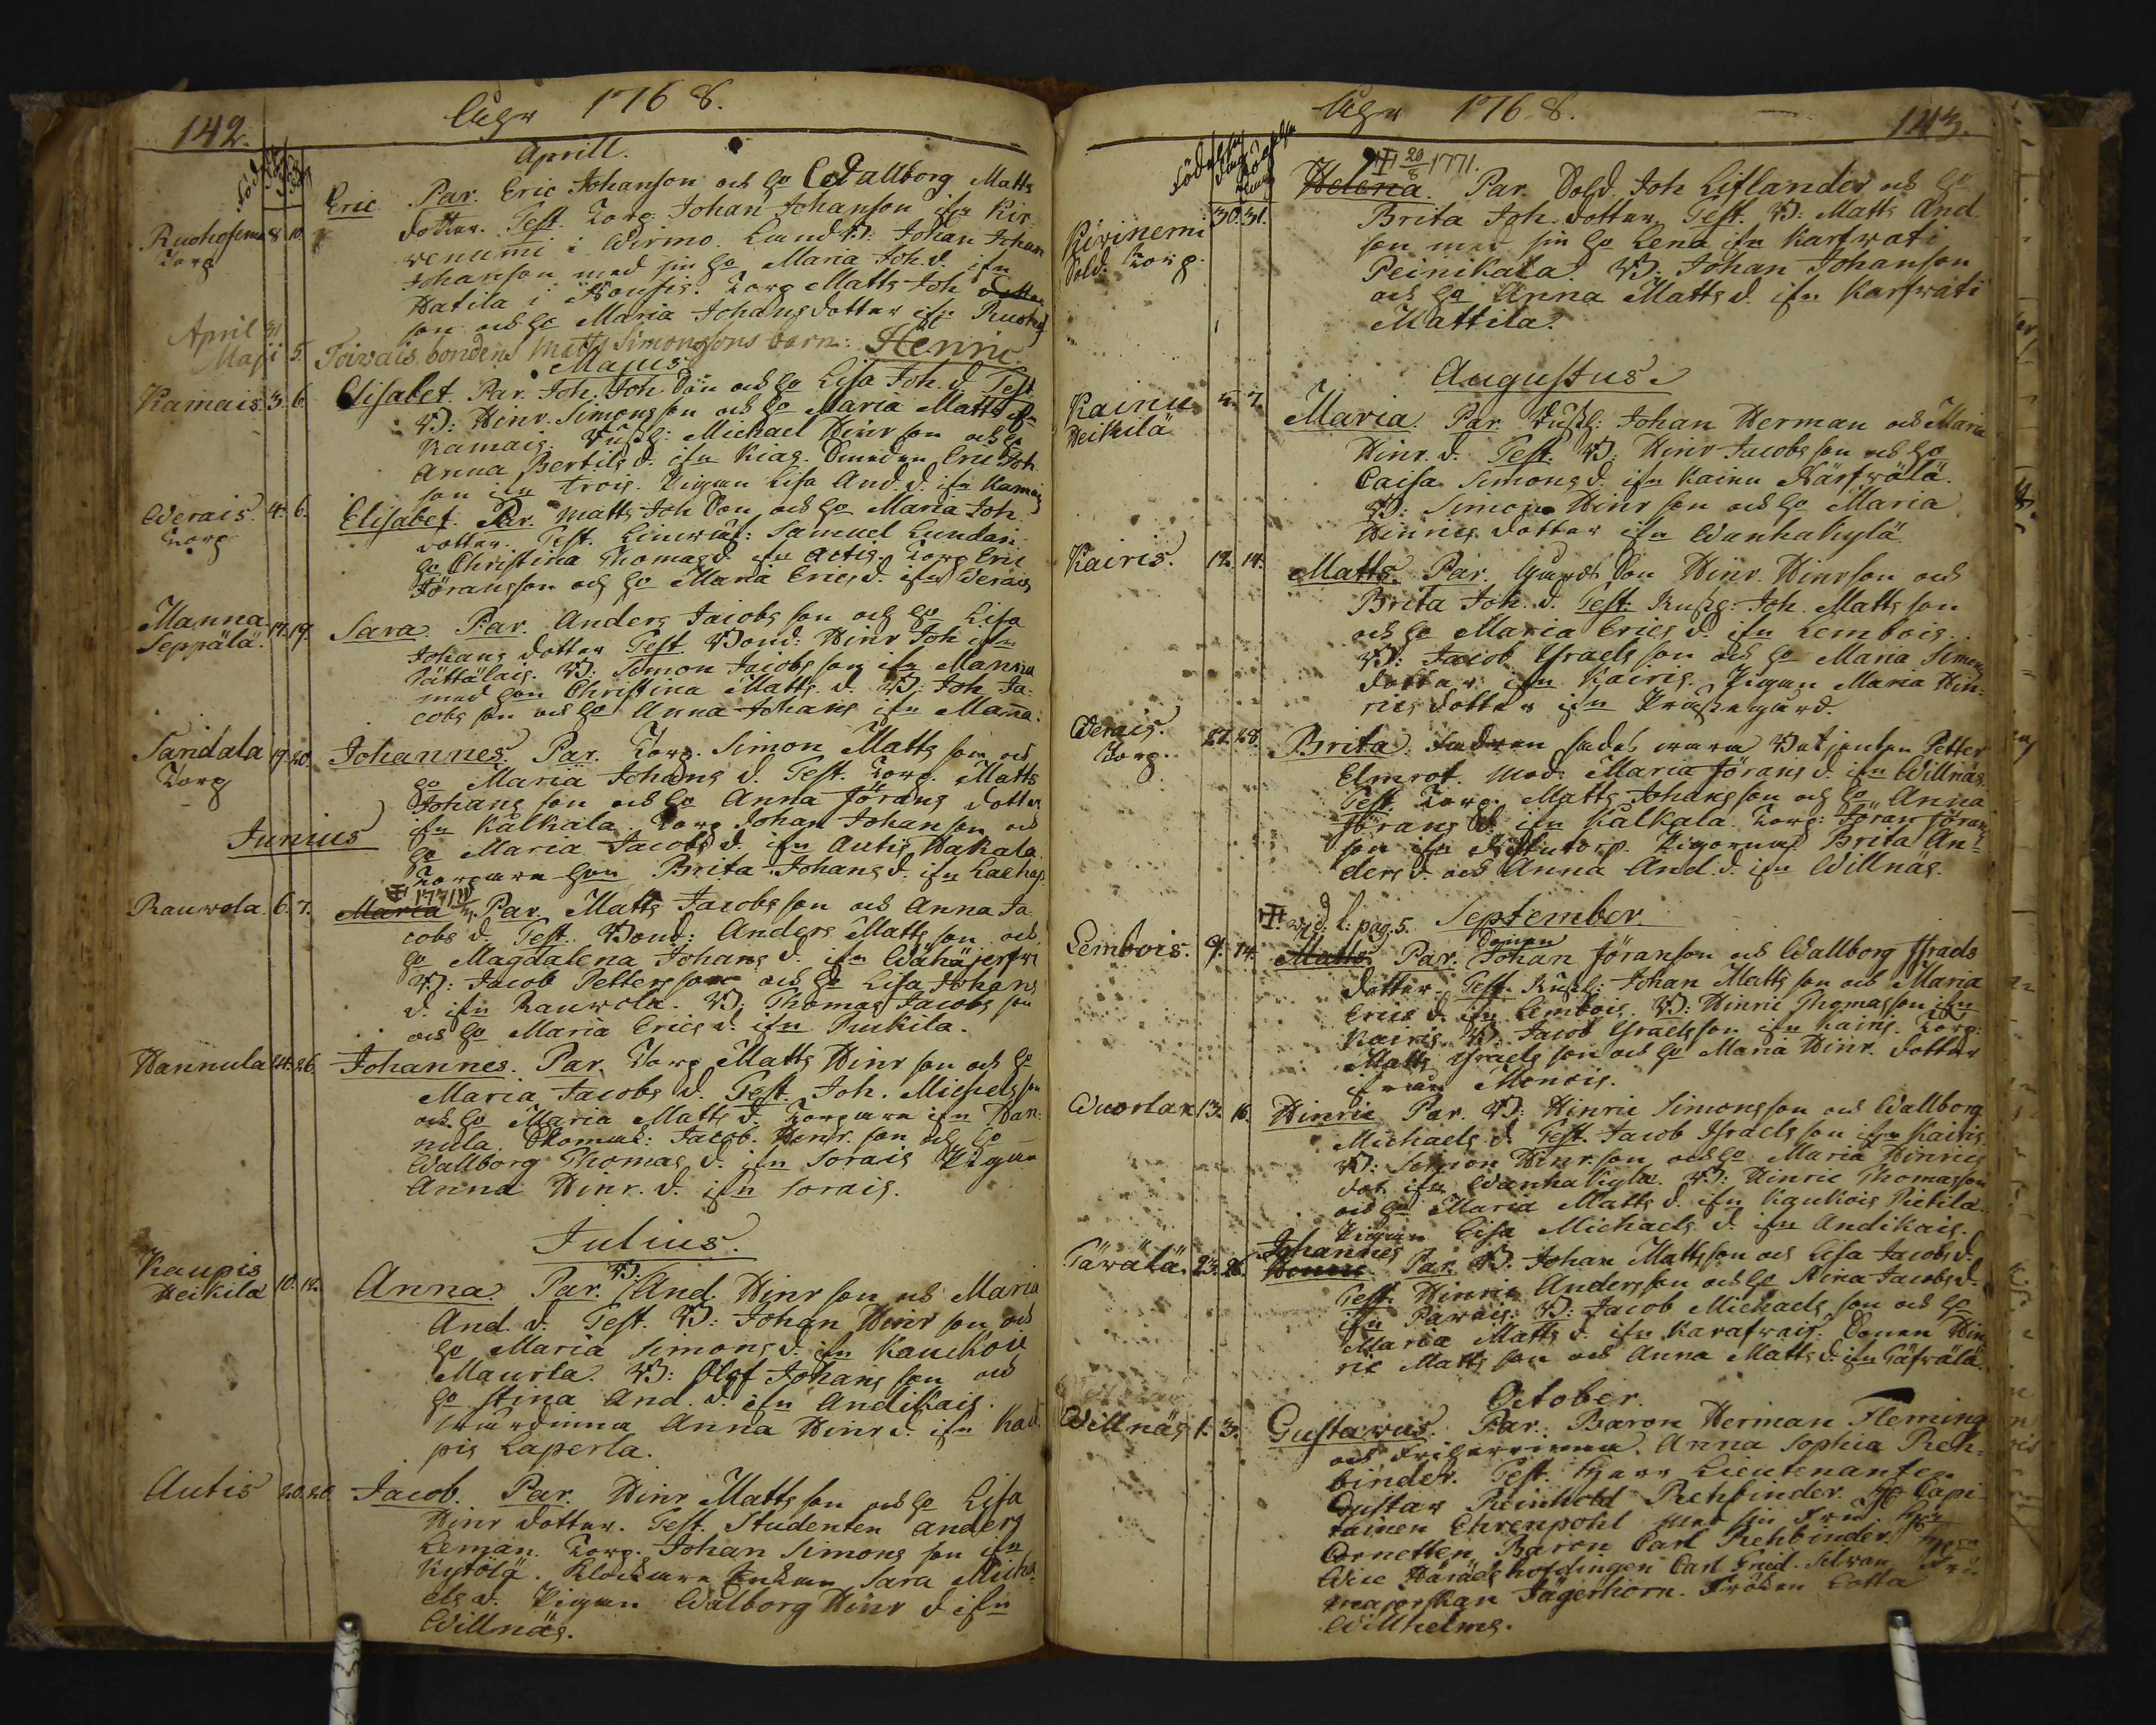 142.
1768.
Aprill.
Ruohosenma 8. 10.
Torp
Eric. Par. Eric Johanson och h. Wallborg Matts
dotter. Test. Torp. Johan Johanson ifn Kir
venumi i Wirmo. Johan Johan
Johanson med sin h. Maria Joh. d. ifn
Hatila i Torp Matts Joh
son och h. Maria Johans dotter ifn
April
Maji 5. Toivais bondens Matts Simonssons barn: Henric
Majus
Kamais. 3. 6. Elisabet. Par. Joh. Joh. Son och h. Lisa Joh. d. Test.
B: Hinr. Simonsson och h. Maria Matts ifn
Kamais. Michael Hinr son och h.
Anna Bertils d. ifn Kias. Eric Joh
son ifn Trois. Pigan Lisa And. d. ifn Kamais
Werais. 4. 6.
Torp
Elisabet. Par. Matts Joh Son och h. Maria Joh.
dotter. Test. Samuel Lundan
h. Christina Thomas d. ifn Actis. Torp Eric
Jöransson och h. Maria Erics d. ifn Werais
Manna
Seppälä. 17. 19.
Sara. Par. Anders Jacobs son och h. Lisa
Johans dotter Test. Bond. Hinr Joh ifn
Pättäläis. B: Simon Jacobs son ifn Manna
med h. Christina Matts d. B: Joh Ja-
cobs son och h. Anna Johans ifn Manna.
Tandala 19. 20.
Torp
Johannes. Par. Torp. Simon Matts son och
h. Maria Johans d. Test. Torp. Matts
Johans son och h. Anna Jörans dotter
ifn Kalkala. Torp Johan Johanson och
Junius
h. Maria Jacobs d. ifn Autis Hakala
Torpare hon Brita Johans d. ifn
1771
Rauwola. 6. 7. Maria Par. Matts Jacobs son och Anna Ja
cobs d. Test. Bond: Anders Matts son och
h. Magdalena Johans d. ifn Wähäjerfwi
B: Jacob Petters son och h. Lisa Johans
d. ifn Rauwola. B: Thomas Jacobs son
och h. Maria Erics d. ifn Puckila.
Hannula 24. 26. Johannes. Par. Torp Matts Hinr son och h.
Maria Jacobs d. Test. Joh. Michels son
och h. Maria Matts d. Torpare ifn Han-
nula. Jacob. Hinr. son och h.
Wallborg Thomas d. ifn Sorais Pigan
Anna Hinr. d. ifn Sorais.
Julius.
Kaupis
Heikila 10. 12.
Anna Par. B: And. Hinr son och Maria
And. d. Test. B: Johan Hinr son och
h. Maria Simons d. ifn Kauckois
Maurla. B: Olof Johans son och
h. Stina And. d. ifn Andikais.
Anna Hinr d. ifn Kau
pis Laperla.
Autis 20. 20. Jacob. Par. Hinr Matts son och h. Lisa
Hinr dotter. Test. Studenten Anders
Leman. Torp. Johan Simons son ifn
Kytölä. Klockare Sara Micha
els d. Pigan Walborg Hinr d ifn
Willnäs.
1768.
143.
Födelse
20/8 1771.
Kivinemi 30. 31.
Sold. Torp.
Helena. Par. Sold. Joh Liflander och h.
Brita Joh. dotter. Test. B: Matts And.
son med sin h. Lena ifn Karfwati
Peinikala. B. Johan Johanson
och h. Anna Matts d. ifn Karfwati
Mattila.
Augustus.
Kainu 5. 7.
Heikilä
Maria. Par. Johan Herman och Maria
Hinr. d. Test. B: Hinr Jacobs son och h.
Caisa Simons d. ifn Kainu Närfwälä.
B: Simon Hinr son och h. Maria
Hinrics dotter ifn Wanhakylä.
Kairis. 12. 14. Matts. Par. Son Hinr. Hinrson och
Brita Joh. d. Test. Joh. Matts son
och h. Maria Erics d. ifn Lembois.
B: Jacob Israels son och h. Maria Simons
dotter ifn Kairis. Pigan Maria Hin-
rics dotter ifn Prästegård.
Werais. 27. 28.
Torp.
Brita. Fadren sades wara Betjenten Petter
Elmrot. Mod. Maria Jörans d. ifn Willnäs.
Test. Torp. Matts Johans son och h. Anna
Jörans d. ifn Kalkala. Torp: Jöran Jörans
son ifn Pigorna Brita An-
ders d. och Anna And. d. ifn Willnäs.
vid. l. pag. 5. September.
Lembois. 9. 14. Matts. Par. Johan Jöranson och Wallborg Israels
dotter. Test. Johan Matts son och Maria
Erics d. ifn Lembois. B: Hinric Thomasson ifn
Kairis. B. Jacob Israelsson ifn Kairis. Torp:
Matts Israels son och h. Maria Hinr. dotter
ifrån Monois.
Wuorlax 13. 16. Hinric Par. B: Hinric Simonsson och Wallborg
Michaels d. Test. Jacob Israels son ifn Kairis.
B: Simon Hinr. son och h. Maria Hinrics
dot. ifn Wanhakyla. B: Hinric Thomasson
och h. Maria Matts d. ifn Kaukois Pietila.
Pigan Lisa Michaels d. ifn Andikais.
Johannes
Tärälä. 23. 26. Par. B. Johan Mattsson och Lisa Jacobs d.
Test. Hinric Andersson och h. Stina Jacobs d.
ifn Parais. B: Jacob Michaels son och h.
Maria Matts d. ifn Karafwais. Sonen Hin
ric Matts son och Anna Matts d. ifn Täfwälä.
October.
Willnäs 1. 3. Gustavus. Par. Baron Herman Fleming
och Friherrinna. Anna Sophia Reh-
binder. Test. Herr Lieutenanten
Gustav Reinhold Rehbinder. H. Capi
tainen Ehrenpohl med sin Fru
Cornetten Baron Carl Rehbinder.
Wice Häradshöfdingen Carl Fried. Fru
Majorskan Jägerhorn. Fröken Lotta
Willhelms.